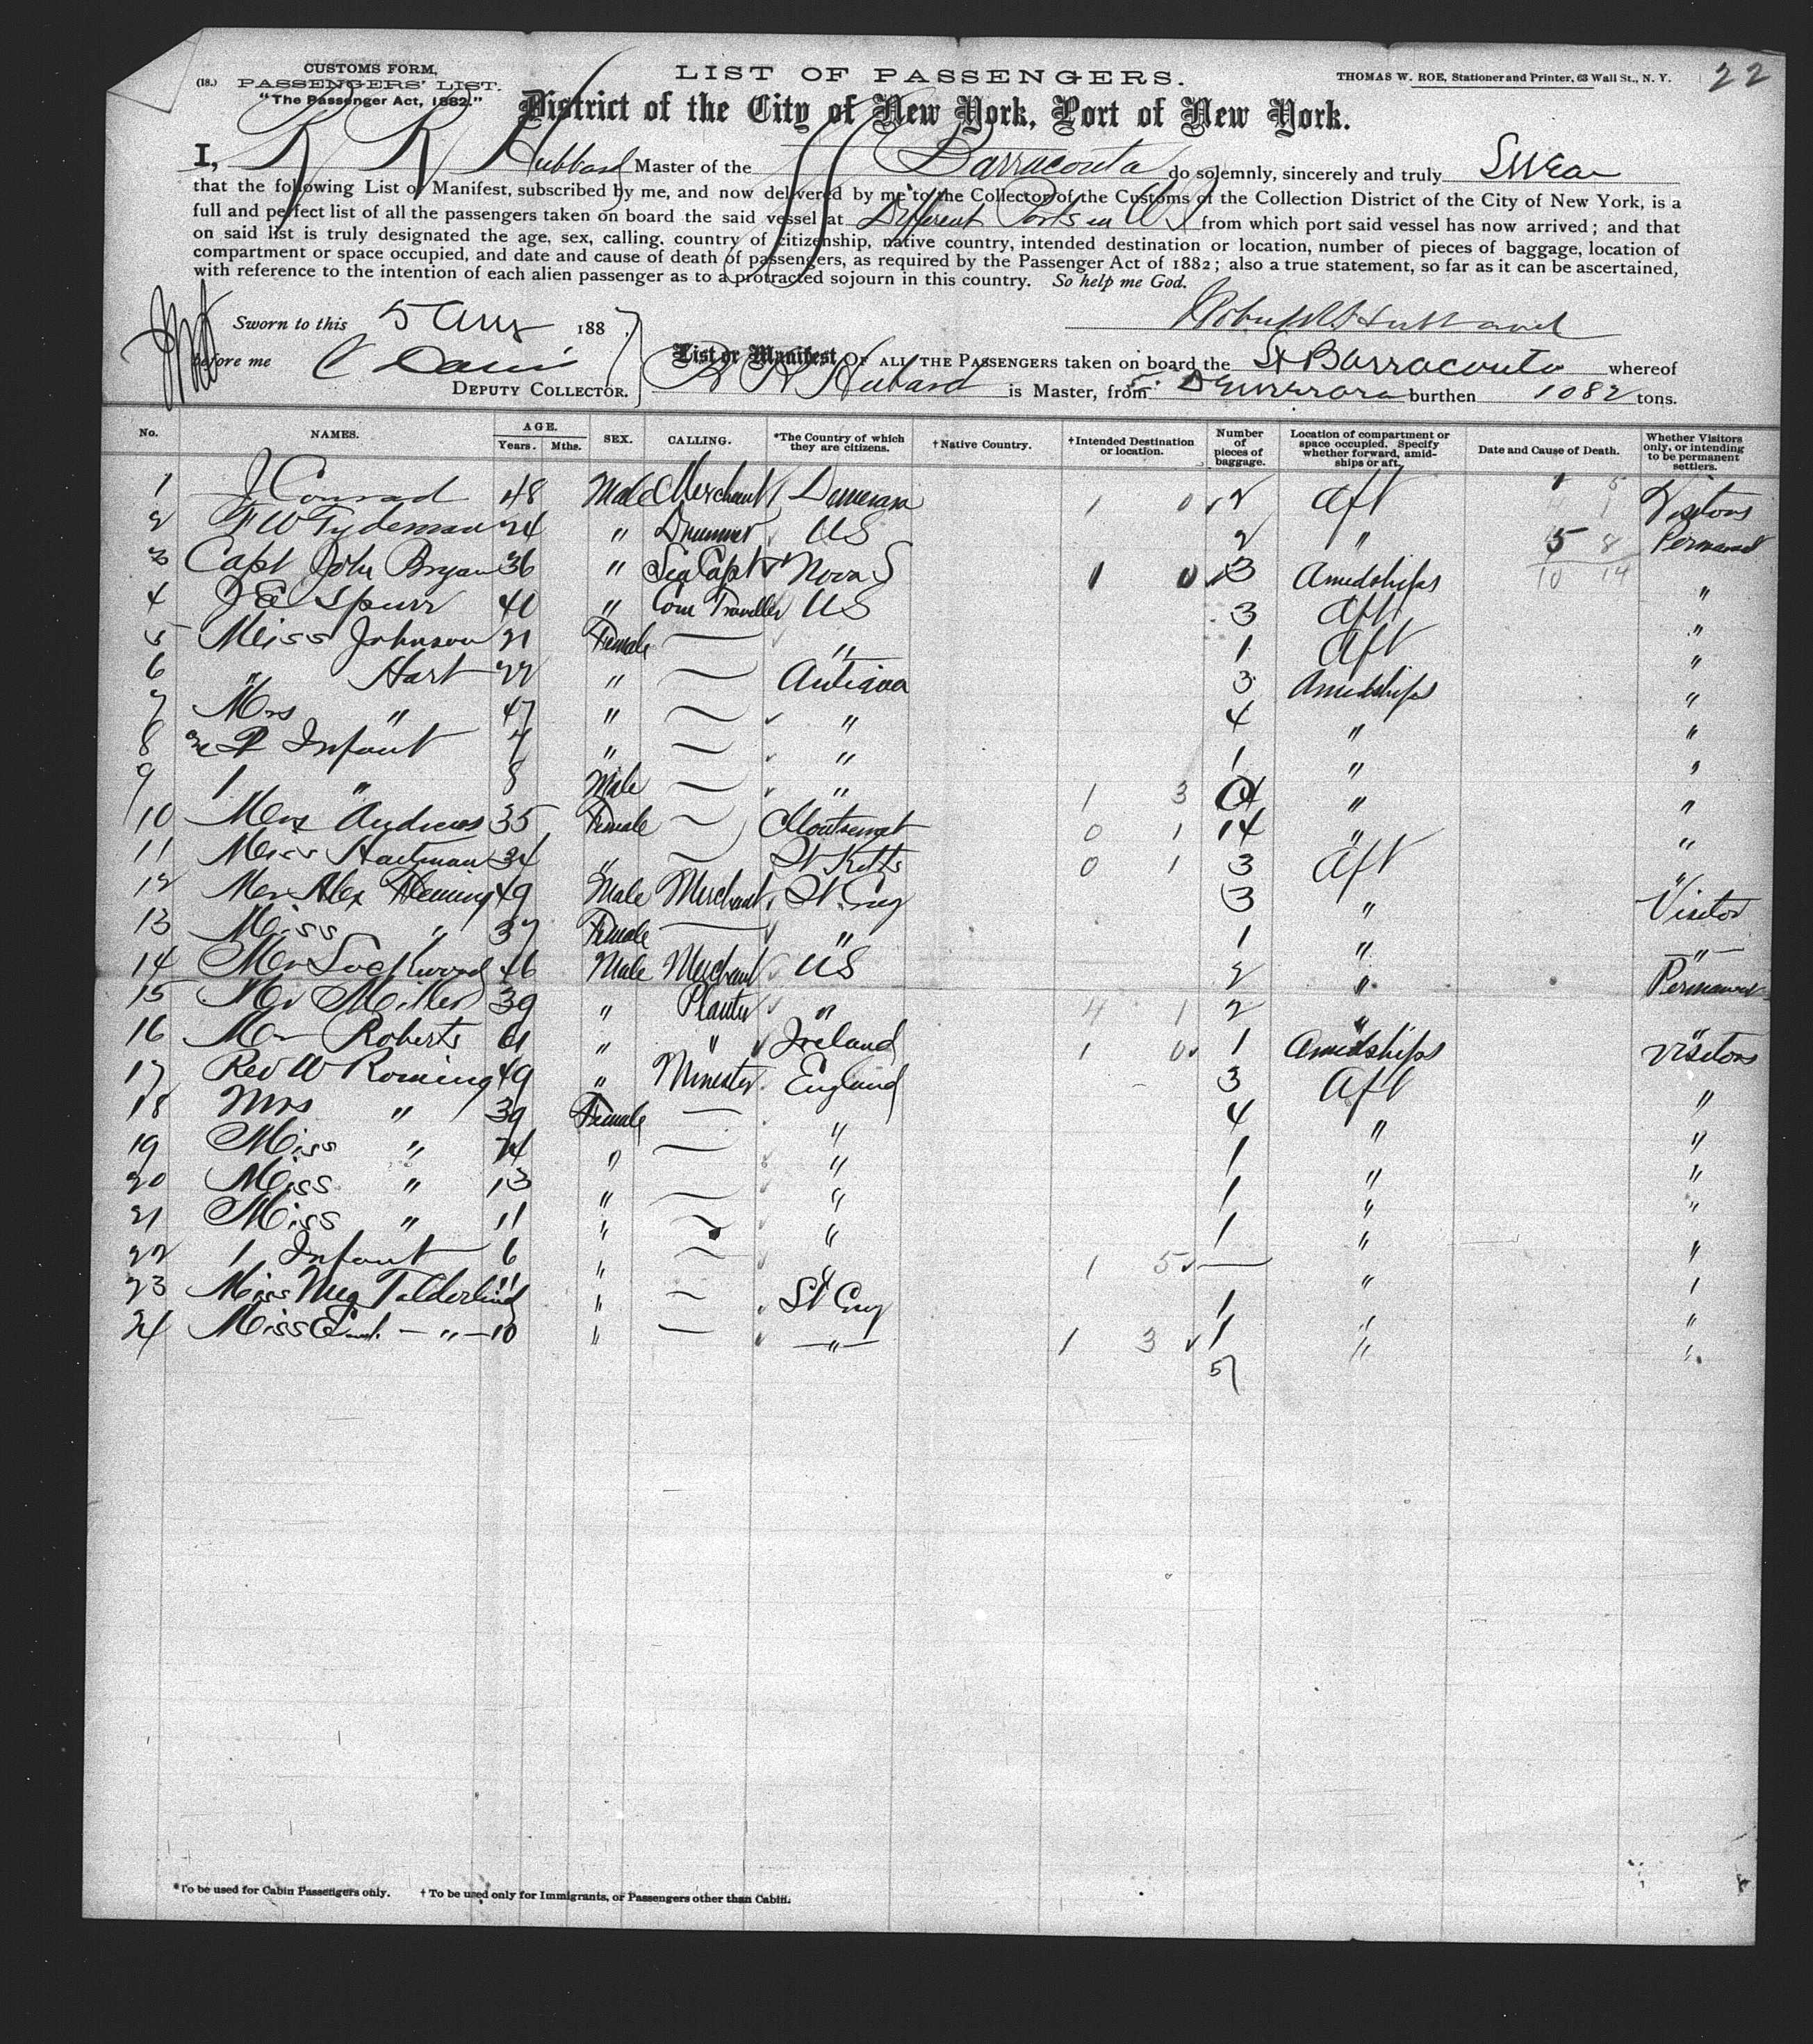 CUSTOMS FORM,
(18.) PASSENGERS' LIST.
"The Passenger Act, 1882."
LIST OF PASSENGERS.
THOMAS W. ROE, Stationer and Printer, 63 Wall St., N. Y.
22
District of the City of New York, Port of New York.
I, R R Hubbard Master of the Barracouta do solemnly, sincerely and truly Swear
that the following List or Manifest, subscribed by me, and now delivered by me to the Collector of the Customs of the Collection District of the City of New York, is a
full and perfect list of all the passengers taken on board the said vessel at Different Ports in W I from which port said vessel has now arrived; and that
on said list is truly designated the age, sex, calling, country of citizenship, native country, intended destination or location, number of pieces of baggage, location of
compartment or space occupied, and date and cause of death of passengers, as required by the Passenger Act of 1882; also a true statement, so far as it can be ascertained,
with reference to the intention of each alien passenger as to a protracted sojourn in this country. So help me God.
Sworn to this 5 Aug 1887
before me C Davis
DEPUTY COLLECTOR.
List or Manifest OF ALL THE PASSENGERS taken on board the Barracouta whereof
R R Hubbard is Master, from burthen 1082 tons.
No. NAMES. AGE. Years. Mths. SEX. CALLING. *The Country of which they are citizens. †Native Country. †Intended Destination or location. Number of pieces of baggage. Location of compartment or space occupied. Specify whether forward, amidships or aft. Date and Cause of Death. Whether Visitors only, or intending to be permanent settlers.
1 J Conrad 48 Male Merchant Demerara 1 0 2 Aft 1 5 Visitors
2 F W Tydeman 24 " Drummer US 2 " 5 8 Permanent
3 Capt John Bryan 36 " Sea Capt Nova S 1 0 3 Amidships 10 14 "
4 J E Spurr 40 " Com Traveller US 3 Aft "
5 Miss Johnson 21 Female — " 1 Aft "
6 " Hart 22 " — Antigua 3 Amidships "
7 Mrs " 47 " — " 4 " "
8 Infant 7 " — " 1 " "
9 1 " 8 Male — " 1 3 " "
10 Mrs Andrews 35 Female — Montserrat 0 1 14 " "
11 Miss Hartman 34 " — St Kitts 0 1 3 Aft "
12 Mr Alex Fleming 49 Male Merchant St Croy 3 " Visitor
13 Miss " 37 Female — " 1 " "
14 Mr Lockwood 46 Male Merchant US 2 " Permanent
15 Mr Miller 39 " Planter " 4 1 2 " "
16 Mr Roberts 61 " " Ireland 1 0 1 Amidships Visitors
17 Rev W Roming 49 " Minester England 3 Aft "
18 Mrs " 39 Female — " 4 " "
19 Miss " 14 " — " 1 " "
20 Miss " 13 " — " 1 " "
21 Miss " 11 " — " 1 " "
22 1 Infant 6 " — " 1 5 — " "
23 Miss Meg 11 " — St Croy 1 " "
24 Miss — " — 10 " — — " — 1 3 1 " "
57
*To be used for Cabin Passengers only. †To be used only for Immigrants, or Passengers other than Cabin.